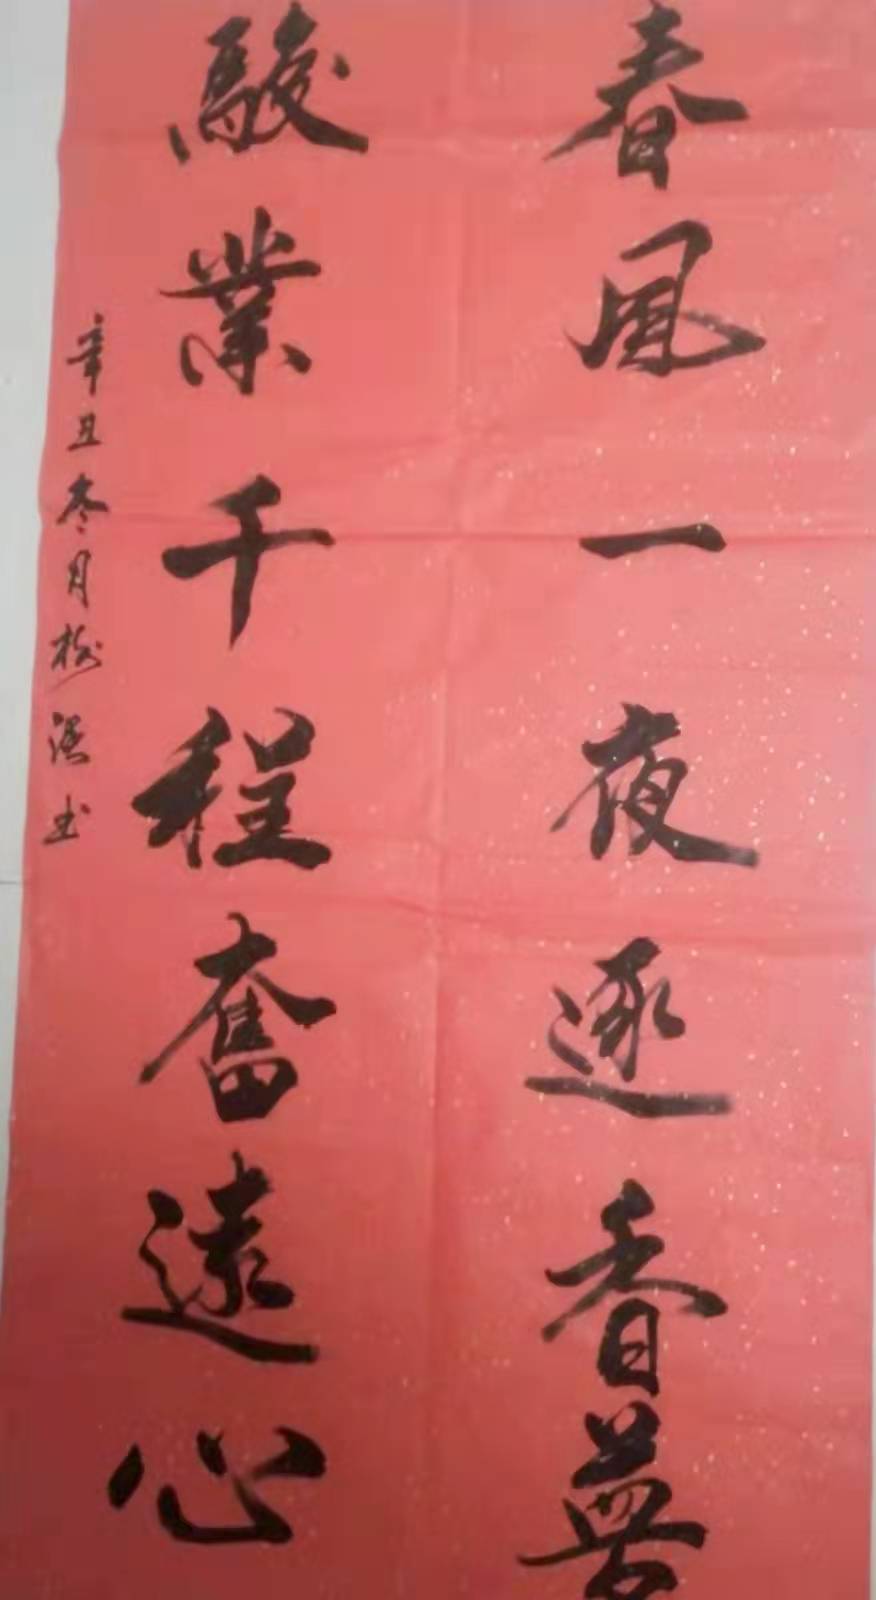 春風一夜逐香夢
駿業千程奮遠心
辛丑冬月樹书